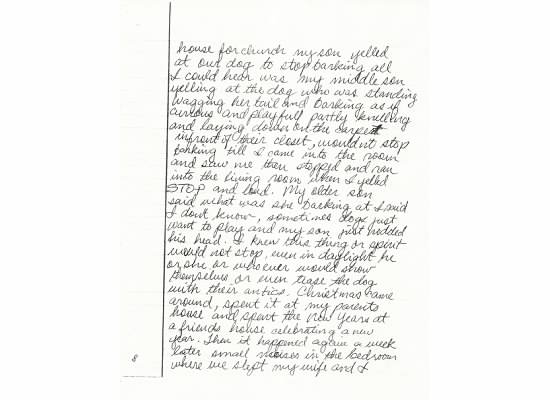 house for church my son yelled
at our dog to stop barking all
I could hear was my middle son
yelling at the dog who was standing
wagging her tail and barking as if
curious and playfull partly knelling
and laying down on the carpet
infront of their closet, wouldnt stop
barking till I came into the room
and saw me then stopped and ran
into the living room when I yelled
STOP and loud. My older son
said what was she barking at I said
I dont know, sometimes dogs just
want to play and my son just nodded
his head. I knew this thing or spirit
would not stop, even in daylight he
or she or whoever would show
themselves or even tease the dog
with their antics. Christmas came
around, spent it at my parents
house and spent the New Years at
a friends house celebrating a new
year. Then it happened again a week
later small noises in the bedroom
where we slept my wife and I
8